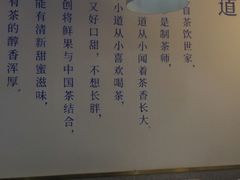 道
自茶饮世家，
是制茶师，
道从小闻着茶香长大，
小道从小喜欢喝茶，
又好口甜，不想长胖，
创将鲜果与中国茶结合，
能有清新甜蜜滋味，
有茶的醇香浑厚。